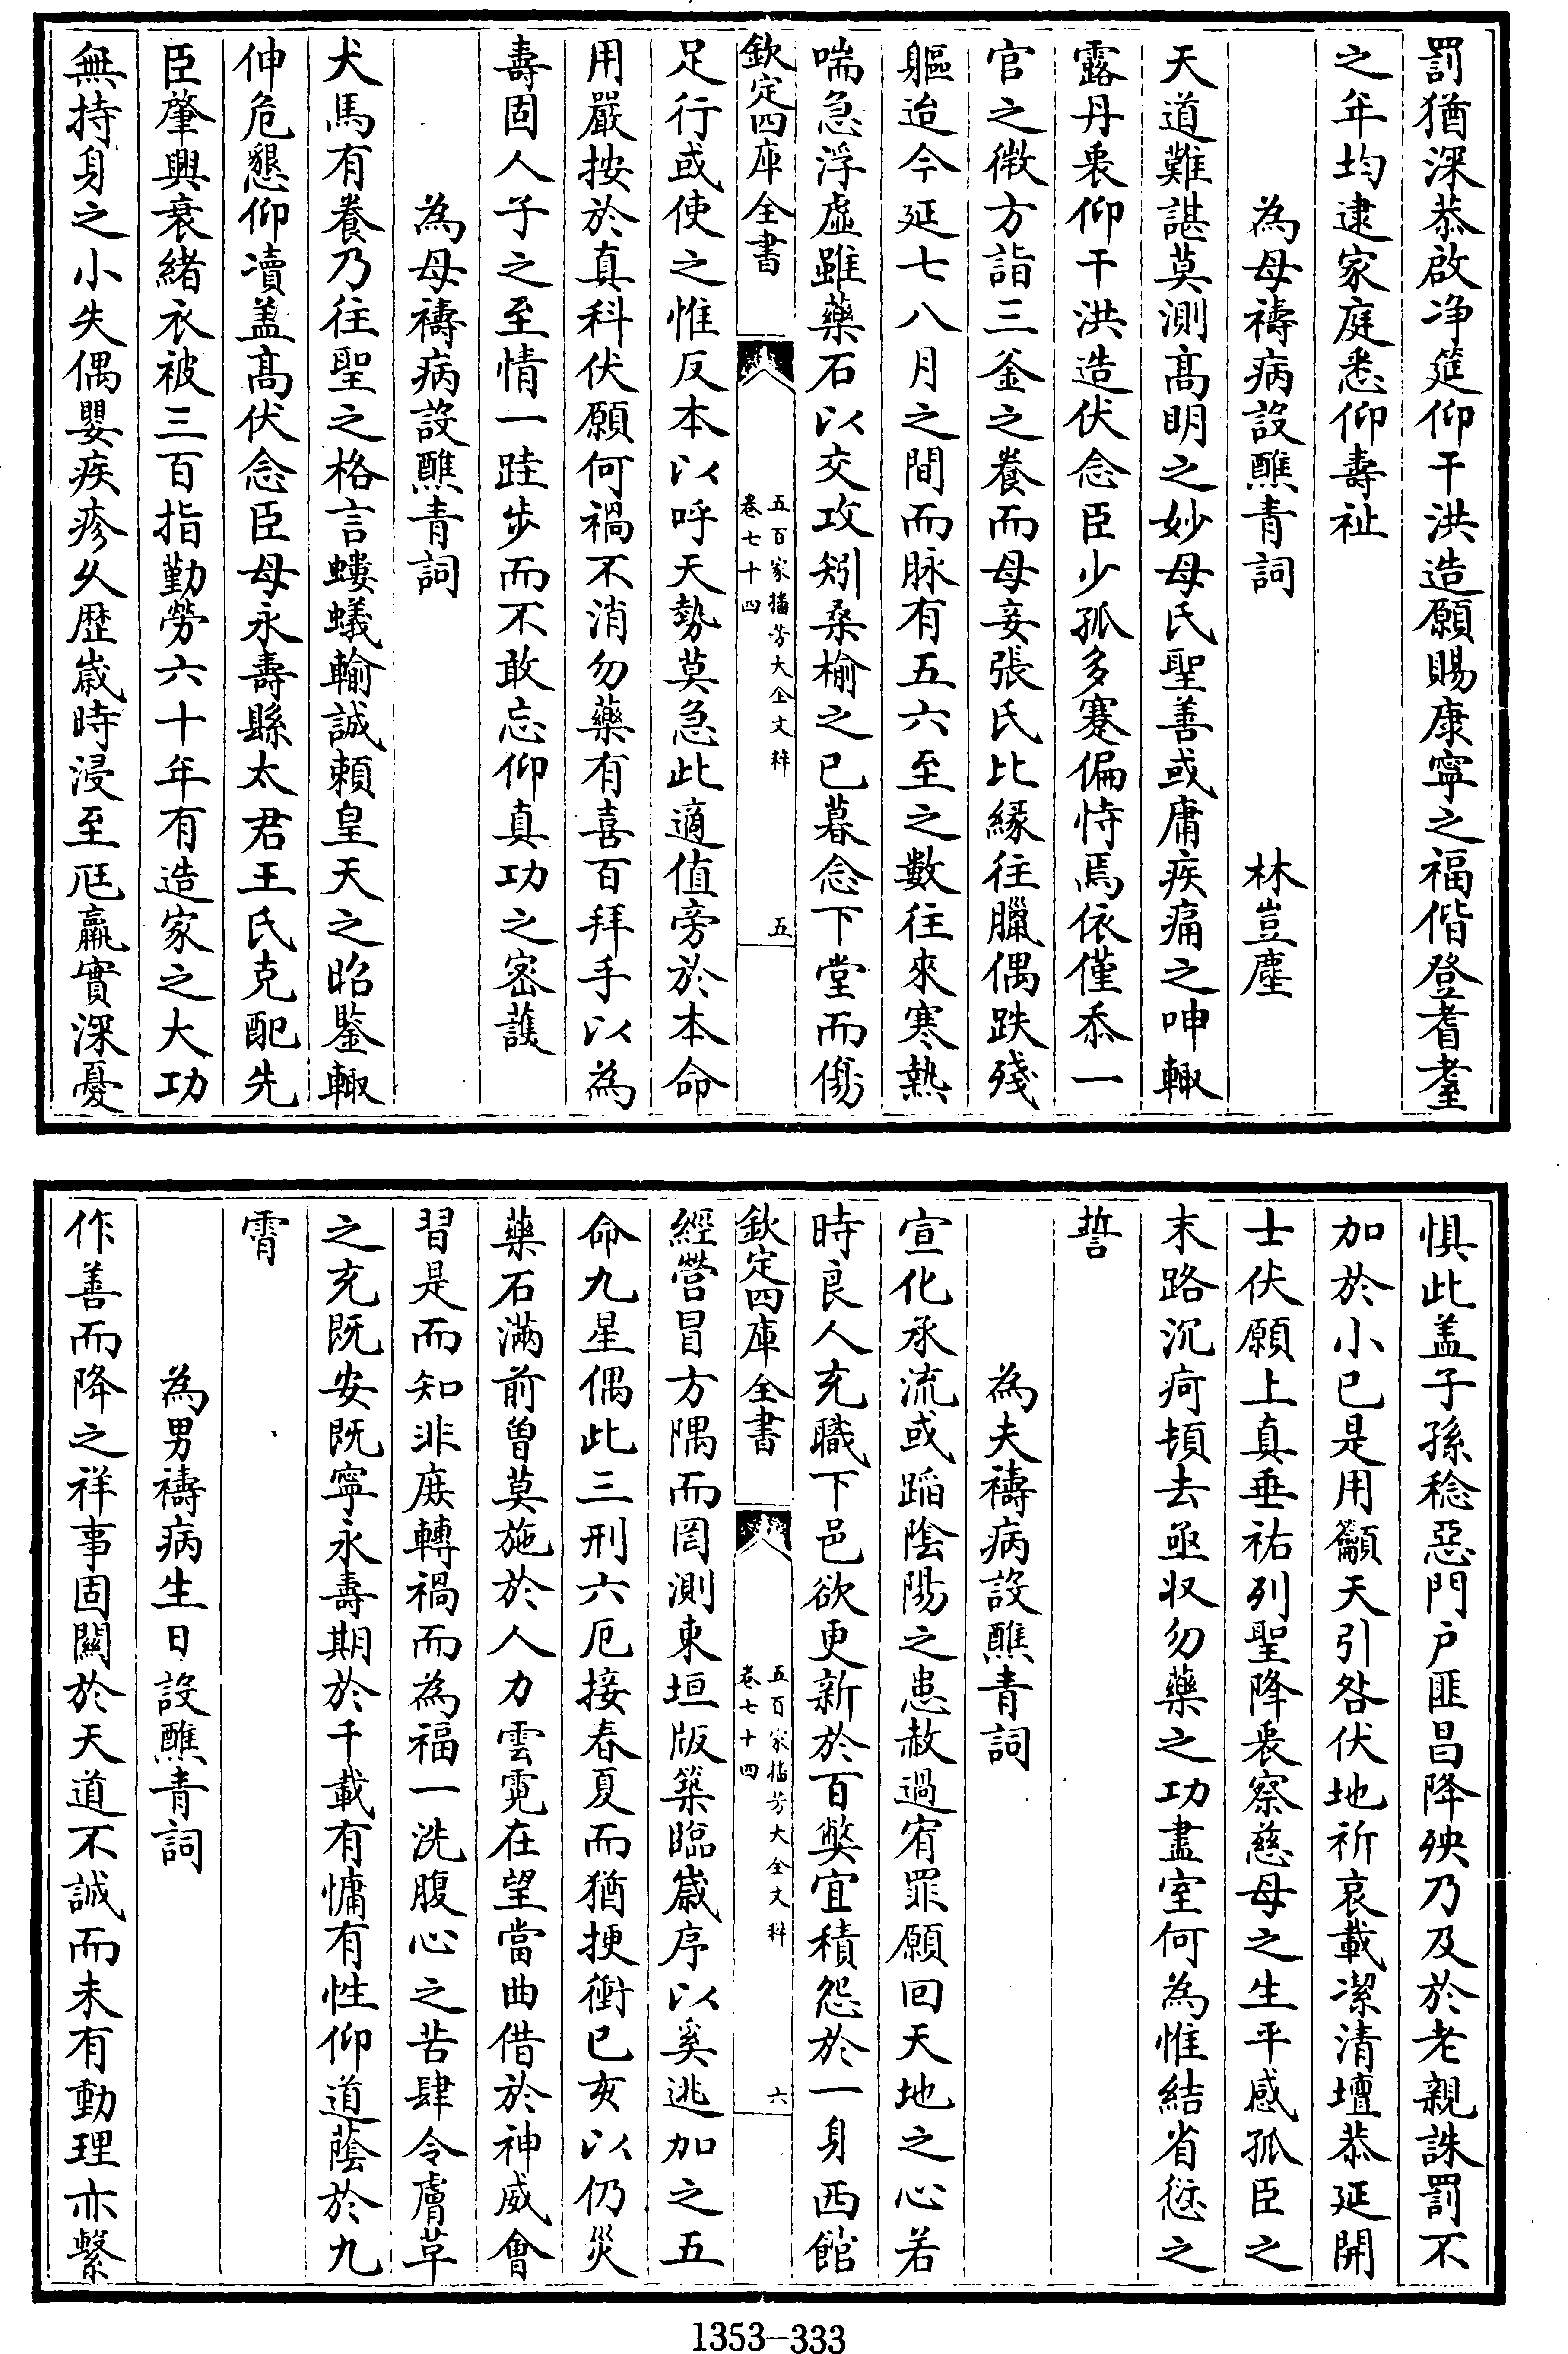 罰猶深恭啟净筵仰干洪造願賜康寧之福偕登耆耋
之年均逮家庭悉仰壽祉
為母禱病設醮青詞　林豈塵
天道難諶莫測髙明之妙母氏聖善或庸疾痛之呻輙
露丹衷仰干洪造伏念臣少孤多蹇偏恃焉依僅忝一
官之微方詣三釜之養而母妾張氏比縁往臘偶跌殘
軀迨今延七八月之間而脉有五六至之數往來寒熱
喘急浮虛雖藥石以交攻矧桑榆之已暮念下堂而傷
欽定四庫全書
五百家播芳大全文粹
卷七十四
五
足行或使之惟反本以呼天勢莫急此適值旁於本命
用嚴按於真科伏願何禍不消勿藥有喜百拜手以為
壽固人子之至情一跬歩而不敢忘仰真功之宻䕶
為母禱病設醮青詞
犬馬有養乃往聖之格言螻蟻輸誠頼皇天之昭鑒輙
伸危懇仰凟盖髙伏念臣母永壽縣太君王氏克配先
臣肇興衰緒衣被三百指勤勞六十年有造家之大功
無持身之小失偶嬰疾疹久歴嵗時浸至尫羸實深憂
惧此盖子孫稔惡門户匪昌降殃乃及於老親誅罰不
加於小已是用籲天引咎伏地祈哀載潔清壇恭延開
士伏願上真垂祐列聖降衷察慈母之生平感孤臣之
末路沉疴頓去亟収勿藥之功盡室何為惟結省愆之
誓
為夫禱病設醮青詞
宣化承流或蹈隂陽之患赦過宥罪願回天地之心若
時良人充職下邑欲更新於百獘宜積怨於一身西館
欽定四庫全書
五百家播芳大全文粹
卷七十四
六
經營冒方隅而罔測東垣版築臨嵗序以奚逃加之五
命九星偶此三刑六厄接春夏而猶挭衝已亥以仍災
藥石滿前曽莫施於人力雲霓在望當曲借於神威會
習是而知非庻轉禍而為福一洗腹心之苦肆令膚革
之充既安既寧永壽期於千載有慵有性仰道䕃於九
霄
為男禱病生日設醮青詞
作善而降之祥事固闗於天道不誠而未有動理亦繫
1353—333